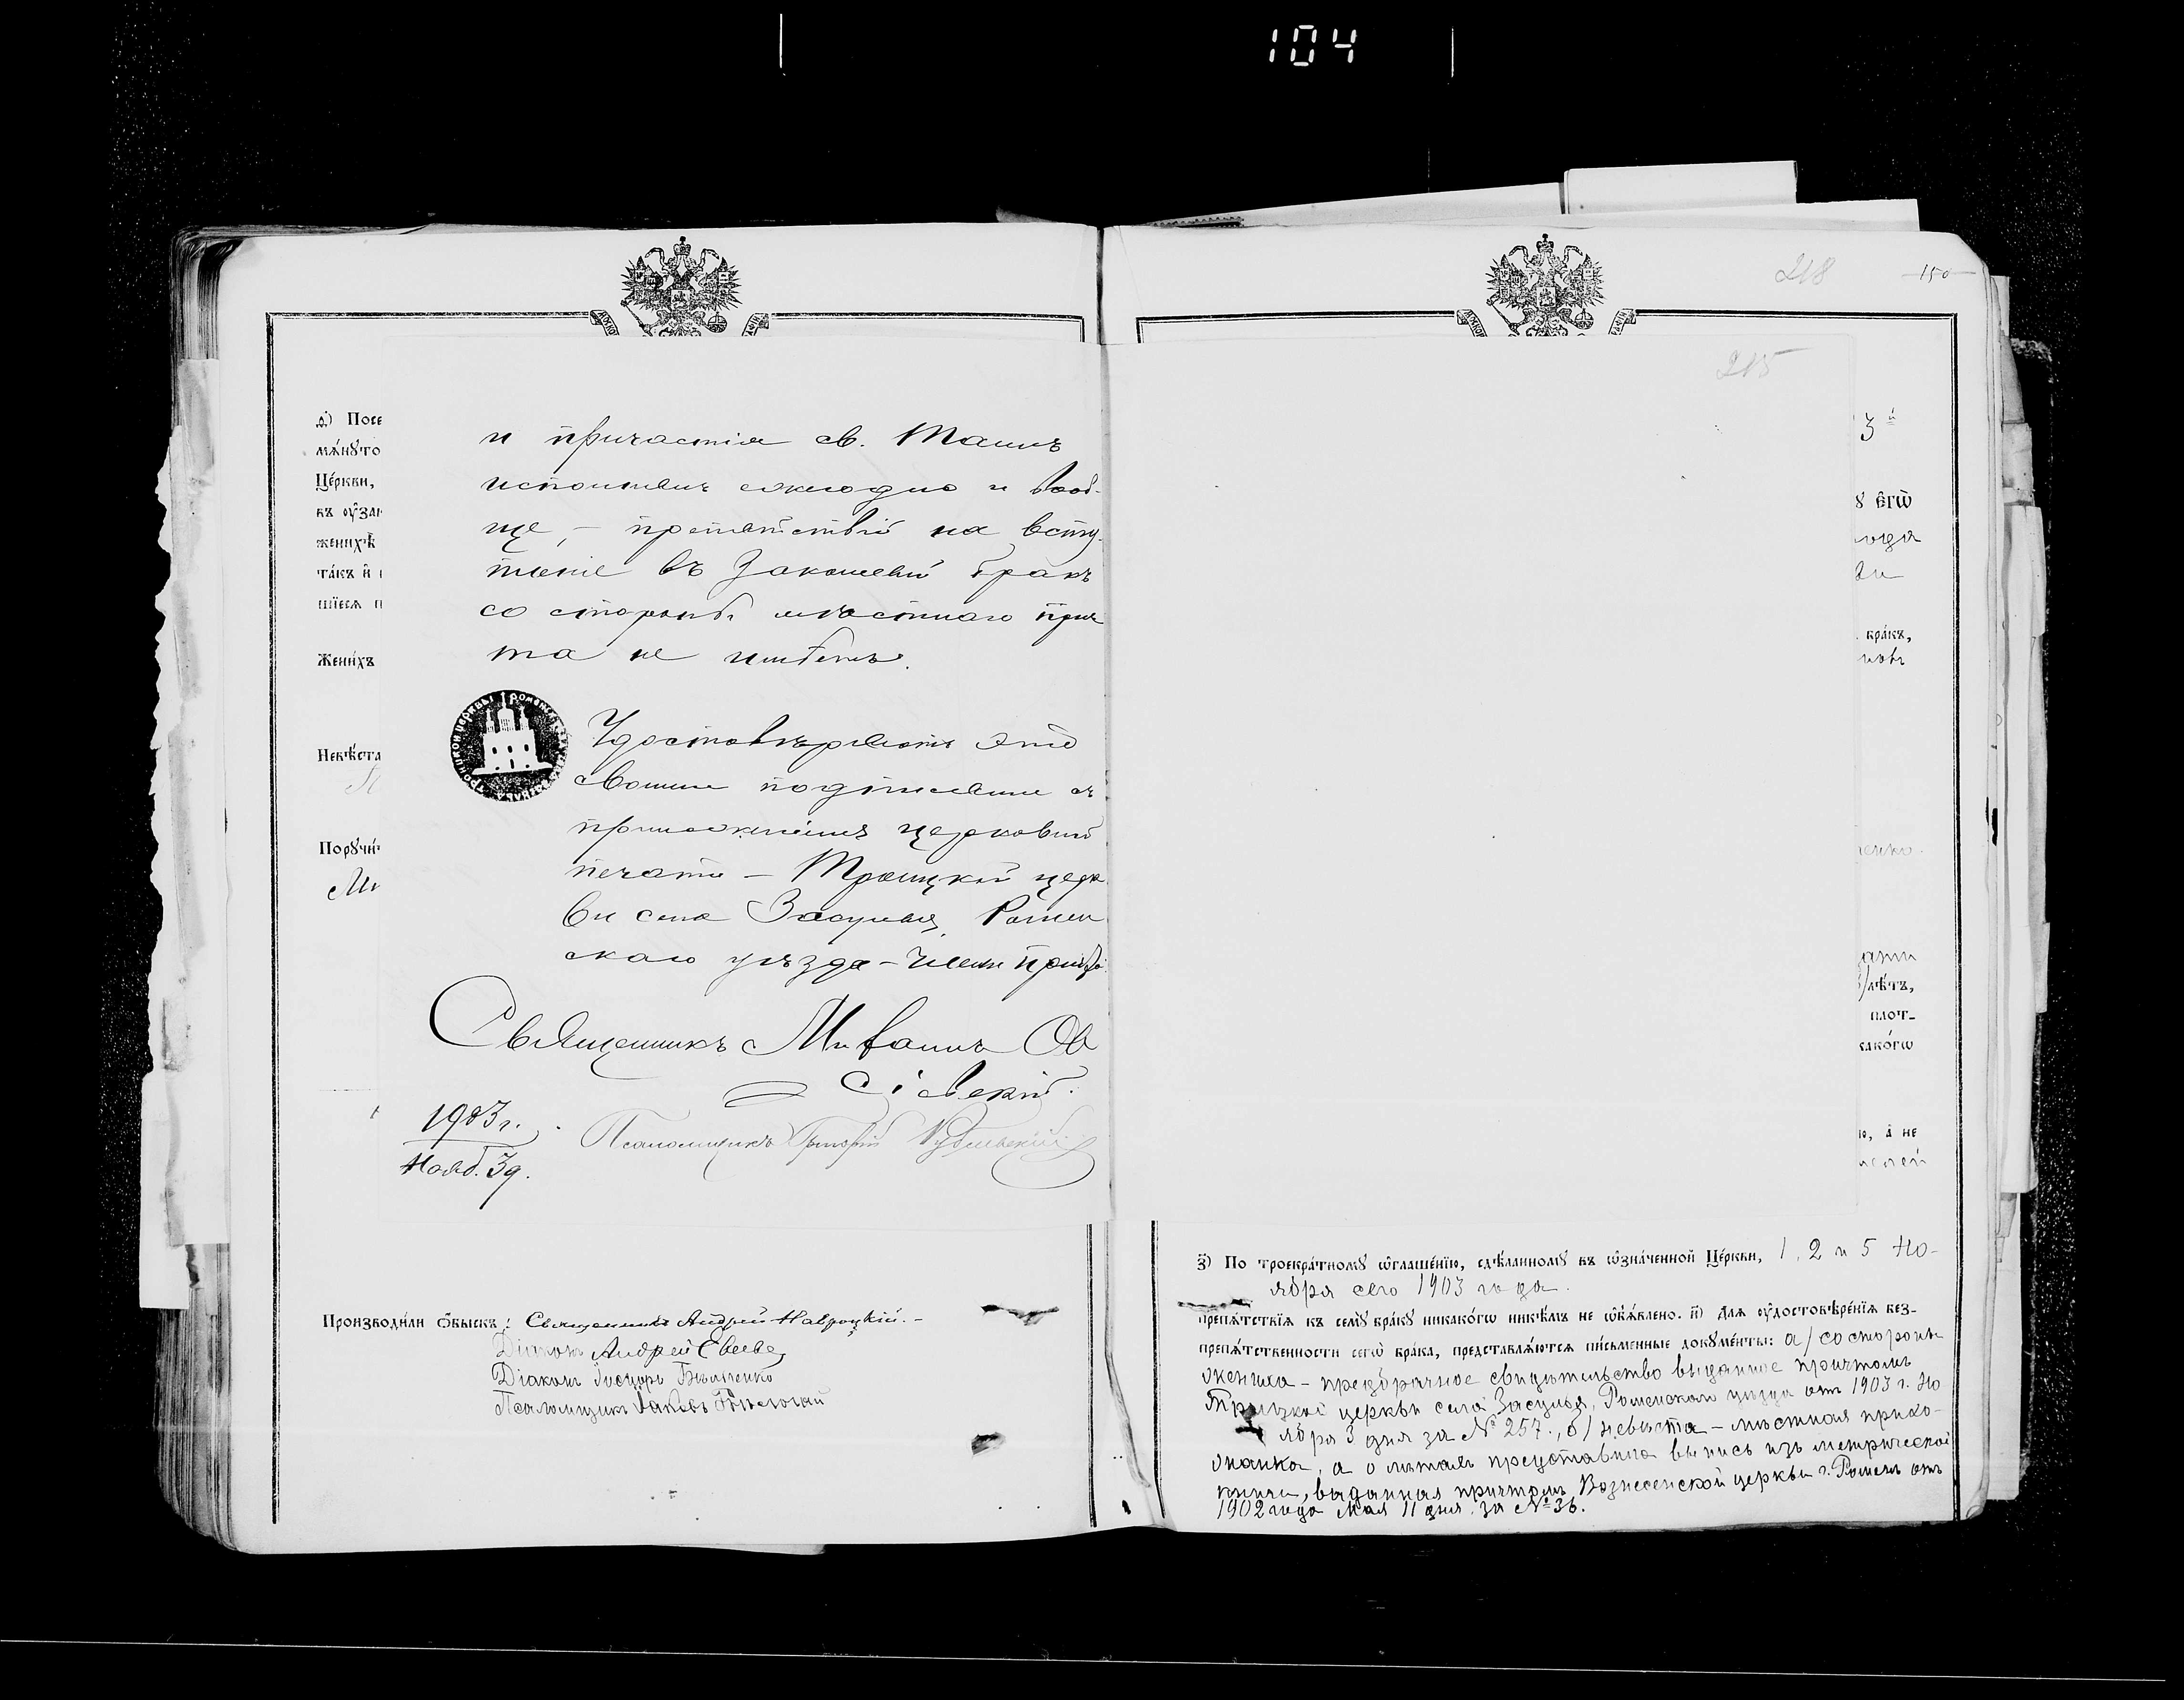 104
218
150
215
а҃) Посе
мѧ́нꙋто
Це́ркви,
къ ᲂу҆зан
женихѣ
та́къ и҆
шїесѧ п
Жени́хъ
Невѣ́ста
Порꙋчи́
Ми
и причастія св. Таинъ
исполнялъ ежегодно и вооб-
ще, – препятствій на всту-
пленіе въ законный бракъ
со стороны мѣстнаго прич
та не имѣетъ.
Удостовѣряютъ это
своими подписями съ
приложеніемъ церковной
печати – Троицкой церк
ви села Засулья, Ромен
скаго уѣзда – члены причта:
Священникъ Ми
сіевскій.
1903 г.
Нояб. 3 д.
Псаломщикъ Григорій
Произвᲂди́ли ѻ҆́быскъ: Священникъ Андрей Навроцкій. –
Діаконъ Андрей Евеевъ
Діаконъ
Псаломщикъ Іаковъ
3й
ꙋ є҆гѡ̀
года
бра́къ,
енко.
)лѣ́тъ,
плот-
какѡ́гѡ
ю, а҆ не
з҃) По троекра́тномꙋ ѡ҆глаше́нїю, сдѣ́ланномꙋ въ ѡ҆зна́ченной Це́ркви, 1, 2 и 5 Но-
ября сего 1903 года.
препѧ́тствїѧ къ семꙋ̀ бра́кꙋ никако́гѡ никѣ́мъ не ѡ҆б̾ѧ́влено. и҃) Длѧ ᲂу҆достовѣре́нїѧ без-
препѧ́тственности сегѡ̀ бра́ка, представлѧ́ютсѧ пи́сьменные докꙋме́нты: а/ со стороны
жениха – предбрачное свидѣтельство выданное причтомъ
Троицкой церкви села Засулья, Роменскаго уѣзда отъ 1903 г. Но
ября 3 дня за № 257., б/ невѣста – мѣстная прихо-
жанка, а о лѣтахъ представила выпись изъ метрической
книги, выданная причтомъ Вознесенской церкви г. Роменъ отъ
1902 года Мая 11 дня за № 36.